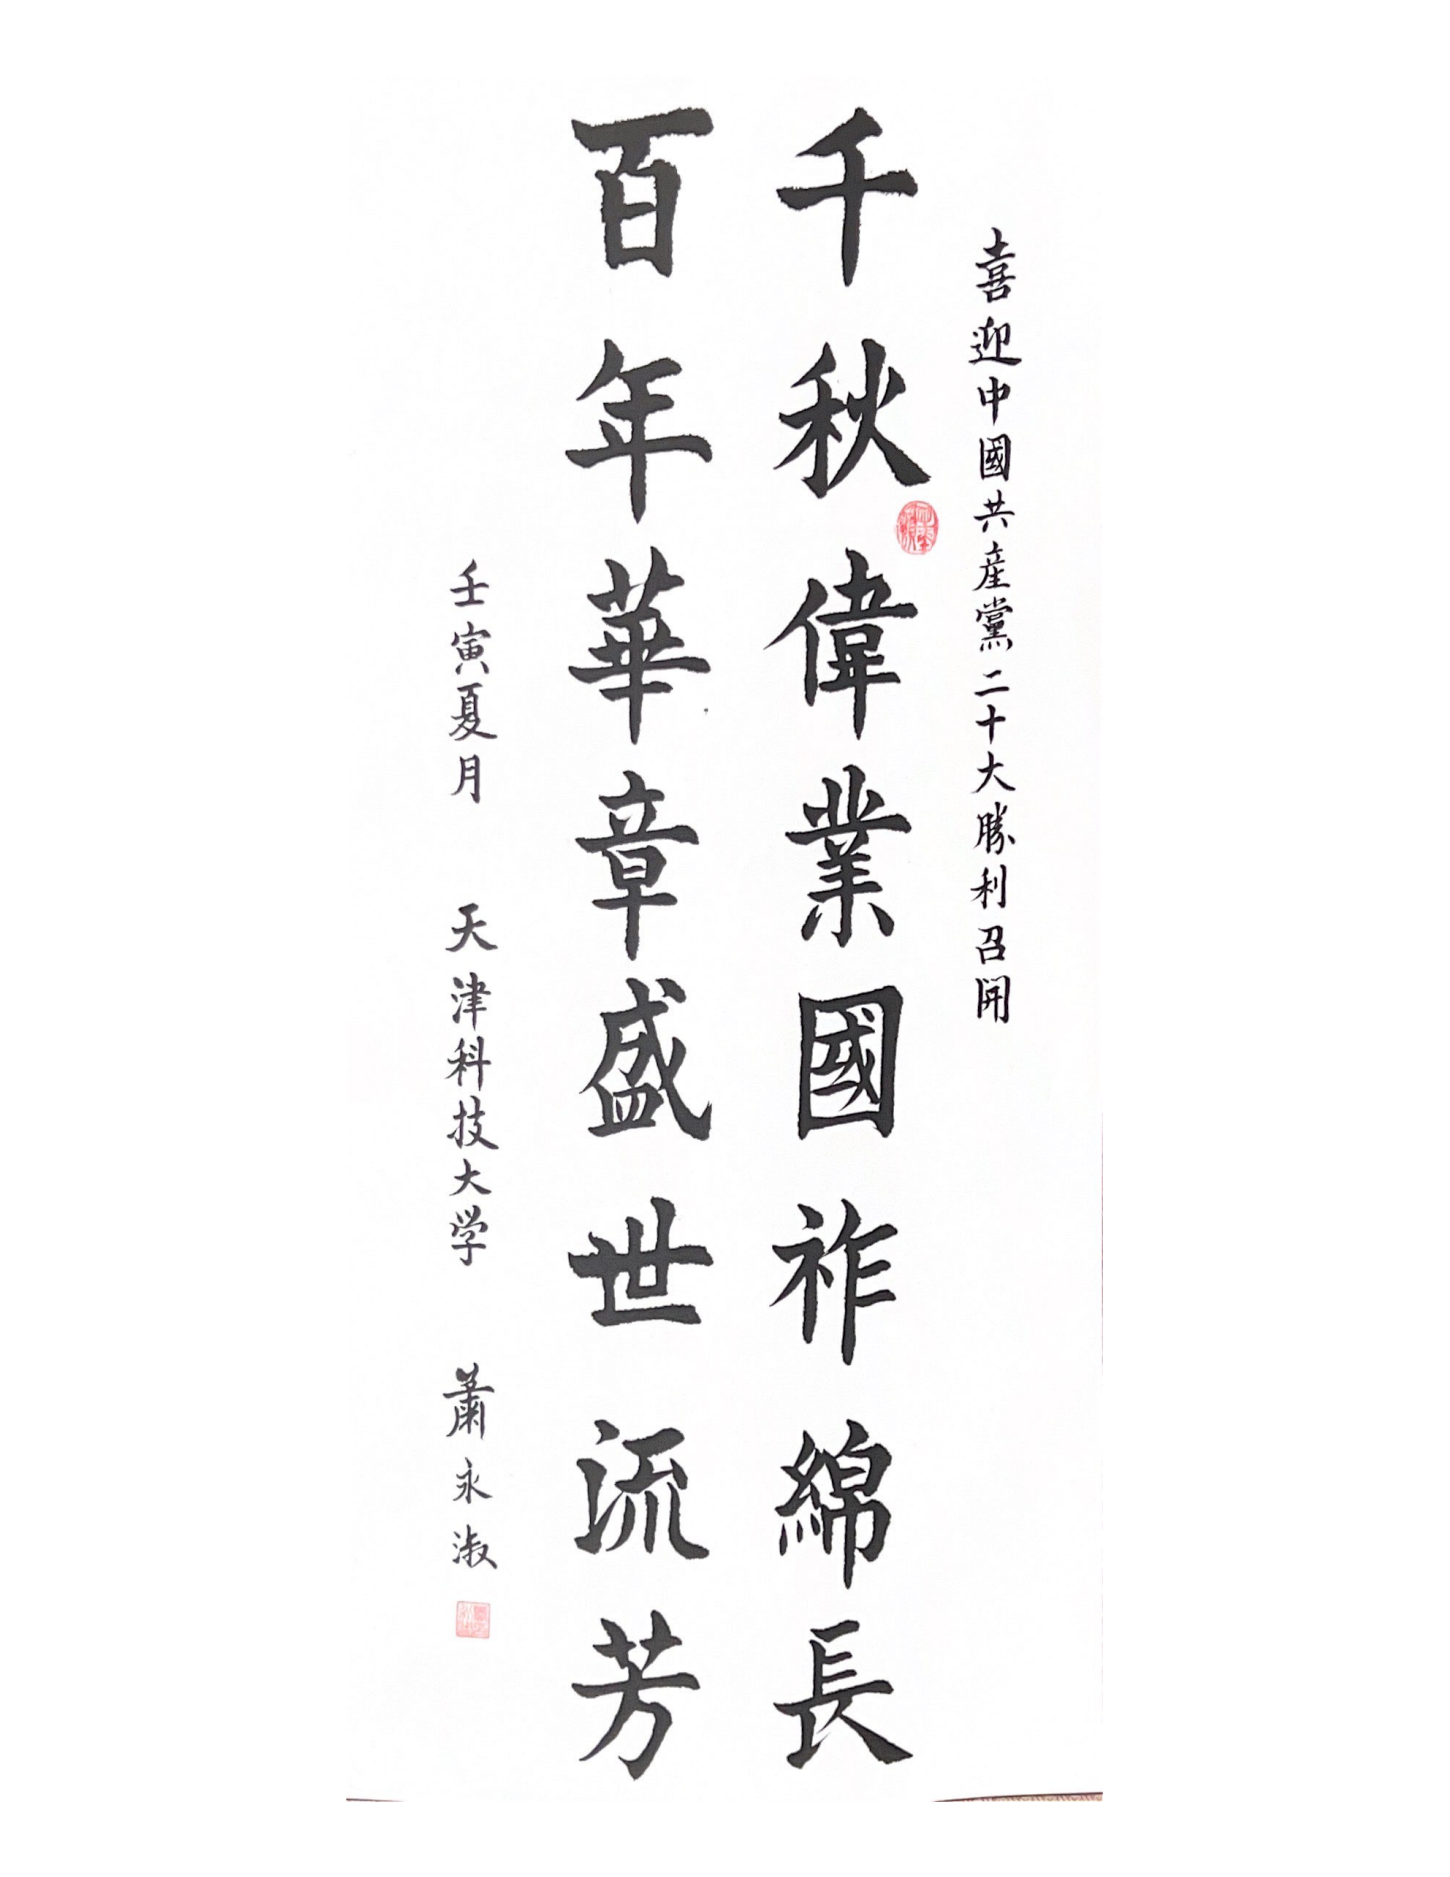 喜迎中國共産黨二十大勝利召開
千秋偉業國祚綿長
百年華章盛世流芳
壬寅夏月 天津科技大学 蕭永淑